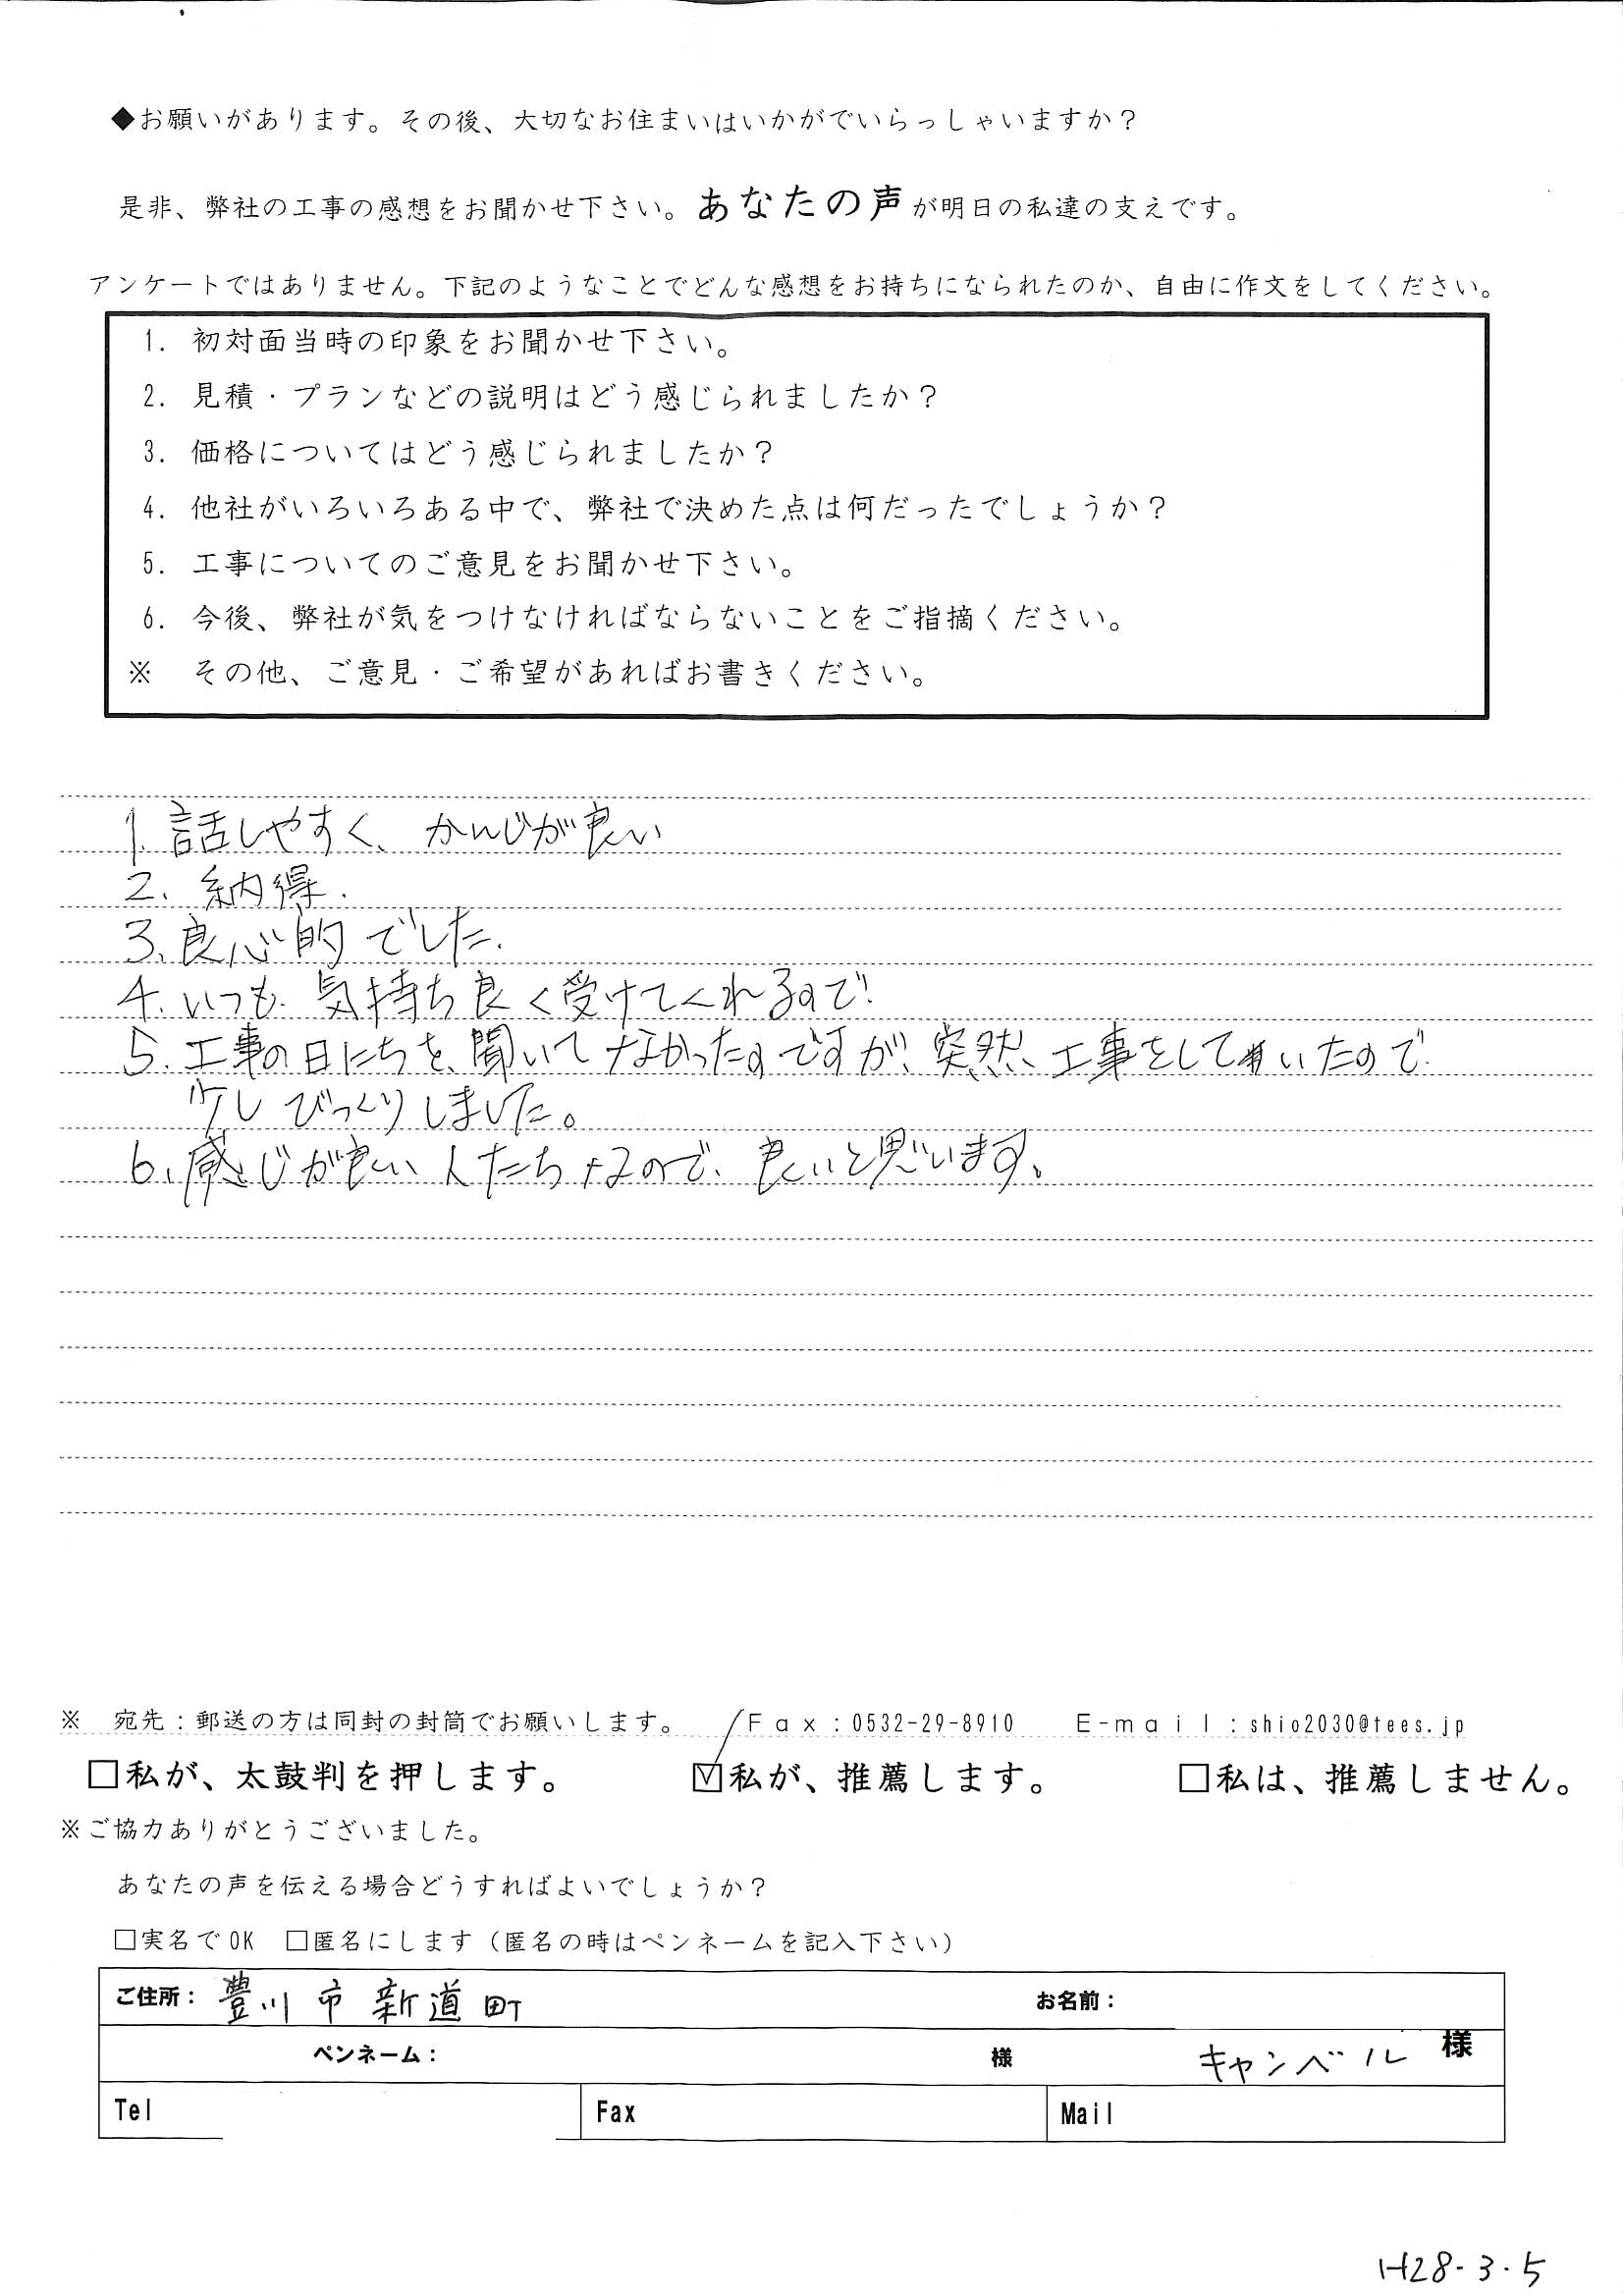 ◆お願いがあります。その後、大切なお住まいはいかがでいらっしゃいますか?
是非、弊社の工事の感想をお聞かせ下さい。あなたの声が明日の私達の支えです。
アンケートではありません。下記のようなことでどんな感想をお持ちになられたのか、自由に作文をしてください。
1. 初対面当時の印象をお聞かせ下さい。
2. 見積・プランなどの説明はどう感じられましたか?
3. 価格についてはどう感じられましたか?
4. 他社がいろいろある中で、弊社で決めた点は何だったでしょうか?
5. 工事についてのご意見をお聞かせ下さい。
6. 今後、弊社が気をつけなければならないことをご指摘ください。
※ その他、ご意見・ご希望があればお書きください。
1. 話しやすく、かんじが良い
2. 納得.
3. 良心的でした.
4. いつも、気持ち良く受けてくれるので!
5. 工事の日にちを、聞いてなかったのですが、突然、工事をしていたので
少しびっくりしました。
6. 感じが良い人たちなので、良いと思います。
※ 宛先:郵送の方は同封の封筒でお願いします。 Fax:0532-29-8910 E-mail:shio2030@tees.jp
□私が、太鼓判を押します。 ☑私が、推薦します。 □私は、推薦しません。
※ご協力ありがとうございました。
あなたの声を伝える場合どうすればよいでしょうか?
□実名でOK □匿名にします(匿名の時はペンネームを記入下さい)
ご住所: 豊川市新道町 お名前:
ペンネーム: 様 キャンベル 様
Tel Fax Mail
H28-3・5